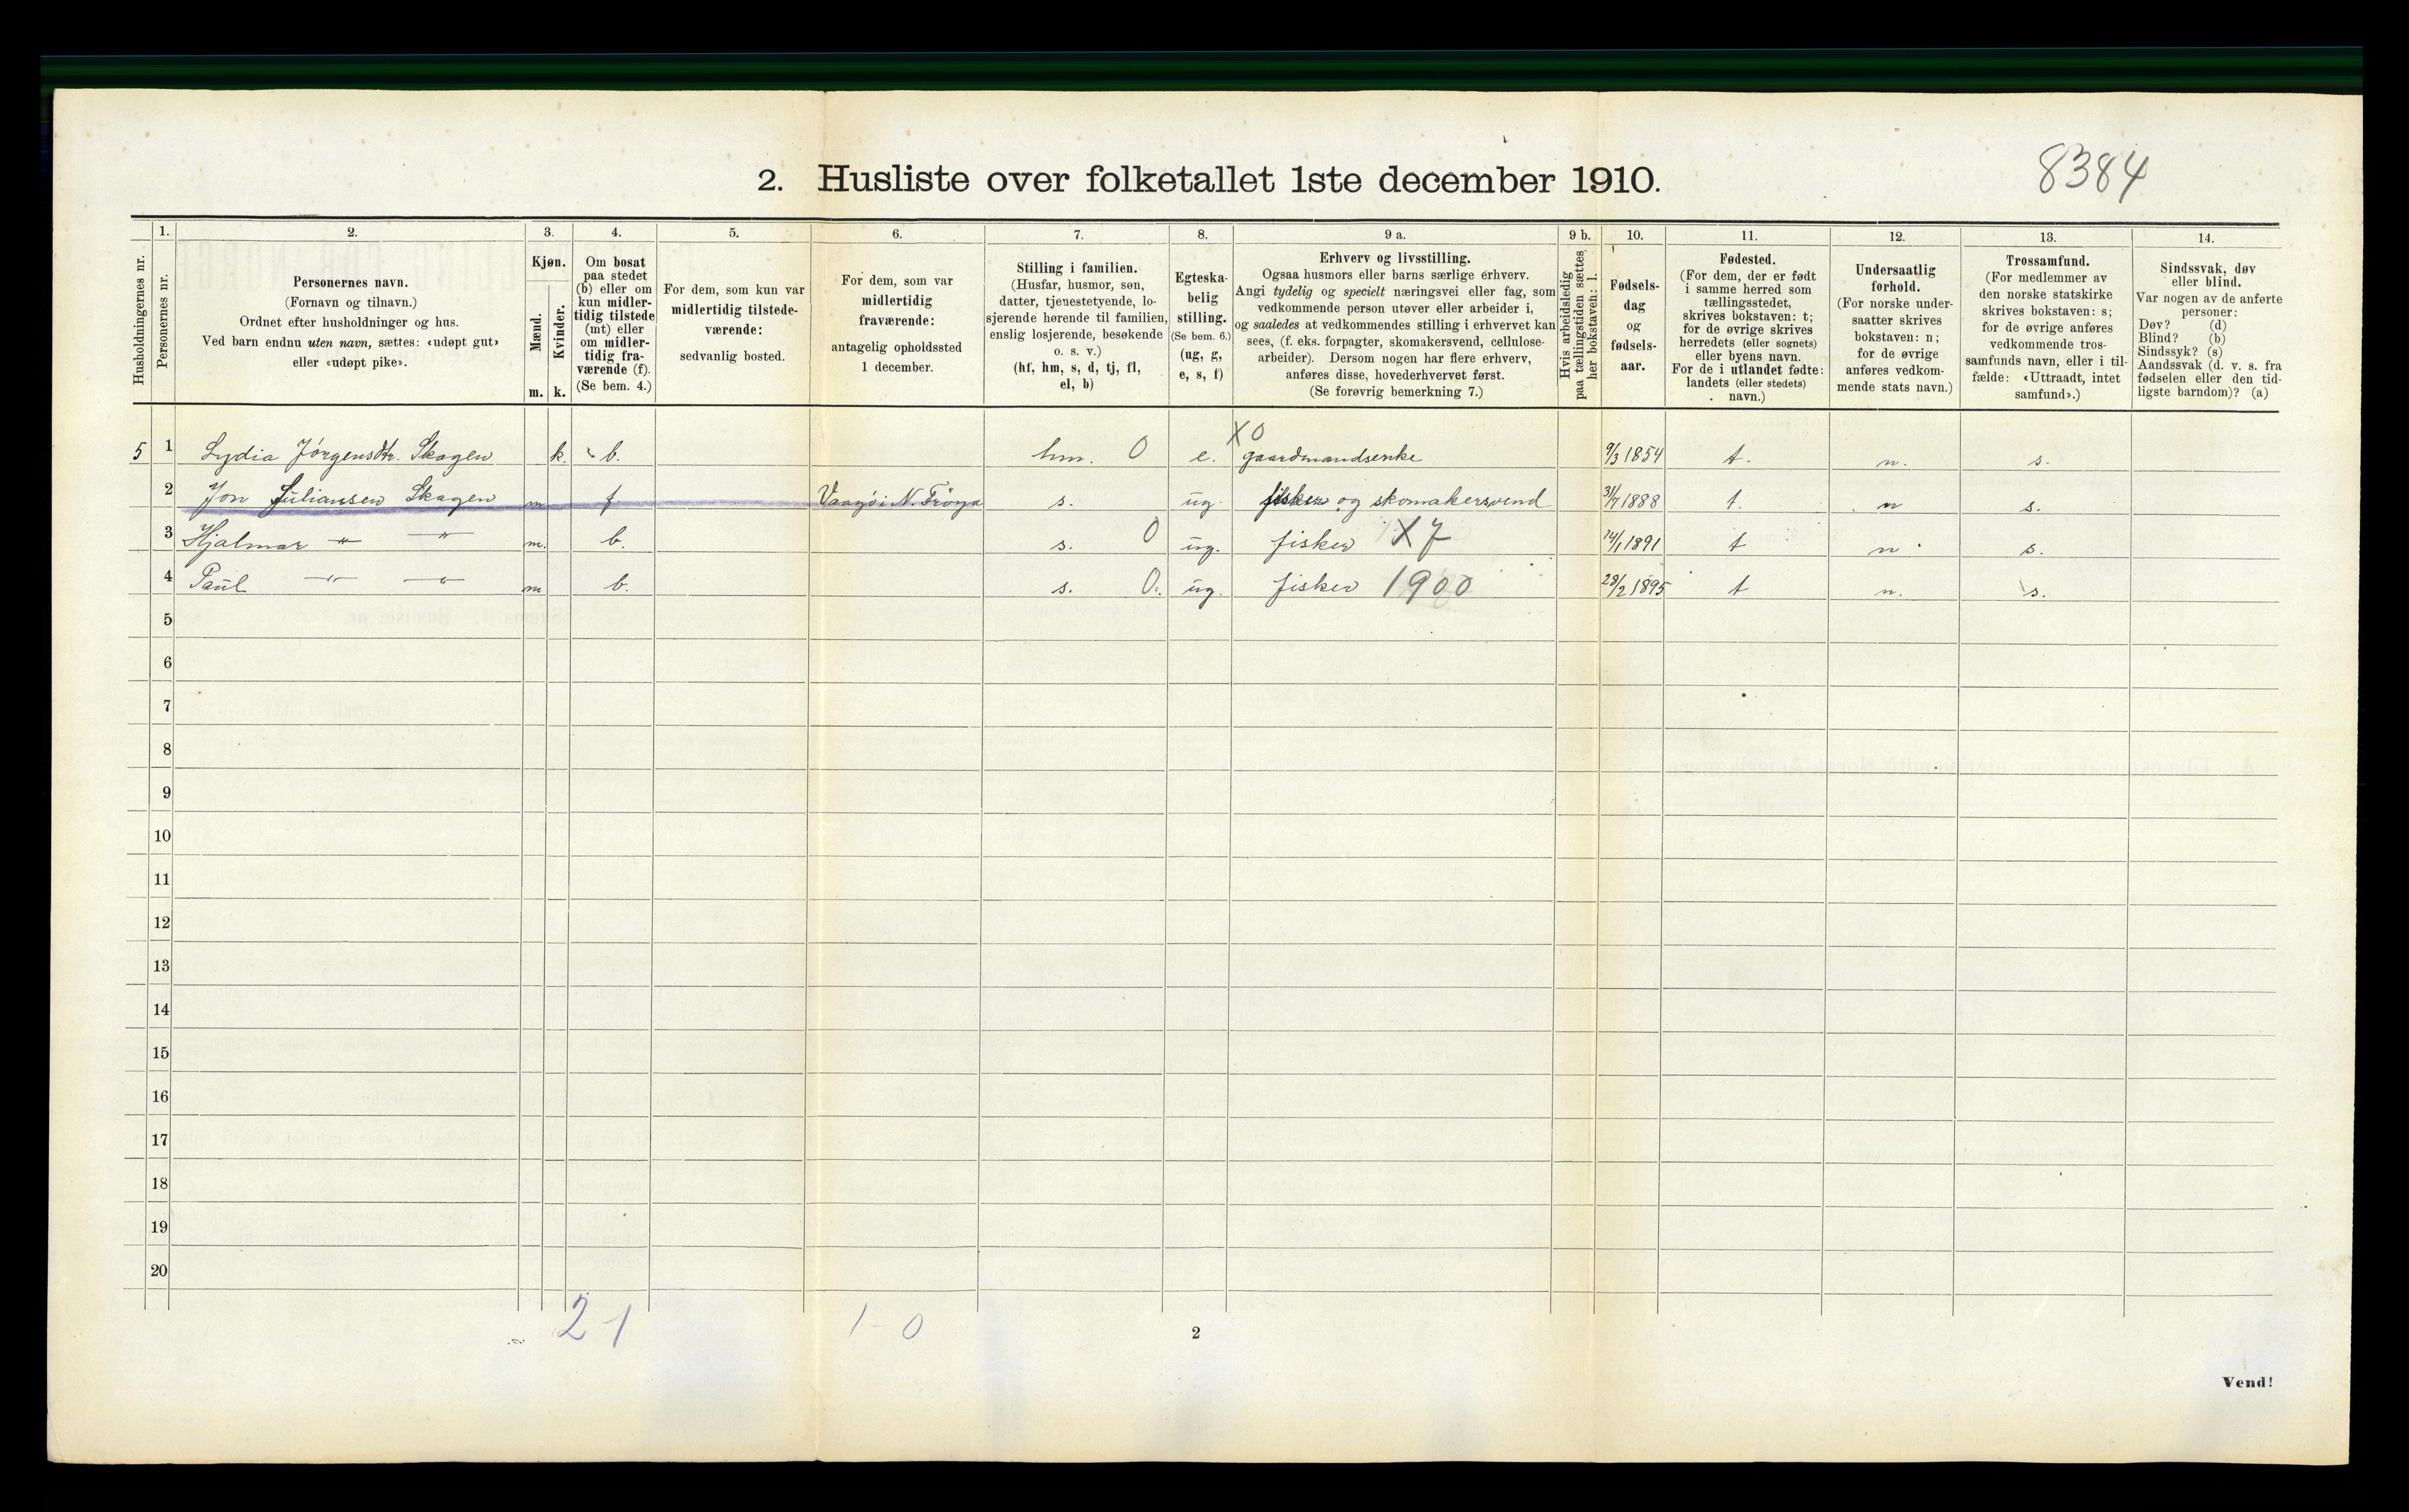 8384
2. Husliste over folketallet 1ste december 1910.
Husholdningernes nr.
1.
Personernes nr.
2.
Personernes navn.
(Fornavn og tilnavn.)
Ordnet efter husholdninger og hus.
Ved barn endnu uten navn, sættes: «udøpt gut»
eller «udøpt pike».
3.
Kjøn.
Mænd.
m.
Kvinder.
k.
4.
Om bosat
paa stedet
(b) eller om
kun midler-
tidig tilstede
(mt) eller
om midler-
tidig fra-
værende (f).
(Se bem. 4.)
5.
For dem, som kun var
midlertidig tilstede-
værende:
sedvanlig bosted.
6.
For dem, som var
midlertidig
fraværende:
antagelig opholdssted
1 december.
7.
Stilling i familien.
(Husfar, husmor, søn,
datter, tjenestetyende, lo-
sjerende hørende til familien,
enslig losjerende, besøkende
o. s. v.)
(hf, hm, s, d, tj, fl,
el, b)
8.
Egteska-
belig
stilling.
(Se bem. 6.)
(ug, g,
e, s, f)
9 a.
Erhverv og livsstilling.
Ogsaa husmors eller barns særlige erhverv.
Angi tydelig og specielt næringsvei eller fag, som
vedkommende person utøver eller arbeider i,
og saaledes at vedkommendes stilling i erhvervet kan
sees, (f. eks. forpagter, skomakersvend, cellulose-
arbeider). Dersom nogen har flere erhverv,
anføres disse, hovederhvervet først.
(Se forøvrig bemerkning 7.)
9 b.
Hvis arbeidsledig
paa tællingstiden sættes
her bokstaven: l.
10.
Fødsels-
dag
og
fødsels-
aar.
11.
Fødested.
(For dem, der er født
i samme herred som
tællingsstedet,
skrives bokstaven: t;
for de øvrige skrives
herredets (eller sognets)
eller byens navn.
For de i utlandet fødte:
landets (eller stedets)
navn.)
12.
Undersaatlig
forhold.
(For norske under-
saatter skrives
bokstaven: n;
for de øvrige
anføres vedkom-
mende stats navn.)
13.
Trossamfund.
(For medlemmer av
den norske statskirke
skrives bokstaven: s;
for de øvrige anføres
vedkommende tros-
samfunds navn, eller i til-
fælde: «Uttraadt, intet
samfund».)
14.
Sindssvak, døv
eller blind.
Var nogen av de anførte
personer:
Døv? (d)
Blind? (b)
Sindssyk? (s)
Aandssvak (d. v. s. fra
fødselen eller den tid-
ligste barndom)? (a)
X0
5 1 Lydia Jörgensdtr. Skagen k. b. hm. 0 e. gaardmandsenke 9/3 1854 t. n. s.
2 Jon Juliansen Skagen m f Vaagöi N. Fröya s. ug. fisker og skomakersvend 31/7 1888 t. n s.
3 Hjalmar " " m. b. s. 0 ug. fisker X7 14/1 1891 t n s.
4 Paul " " m b. s. 0. ug. fisker 1900 28/2 1895 t n. s.
5
6
7
8
9
10
11
12
13
14
15
16
17
18
19
20
2 1 1-0
2
Vend!